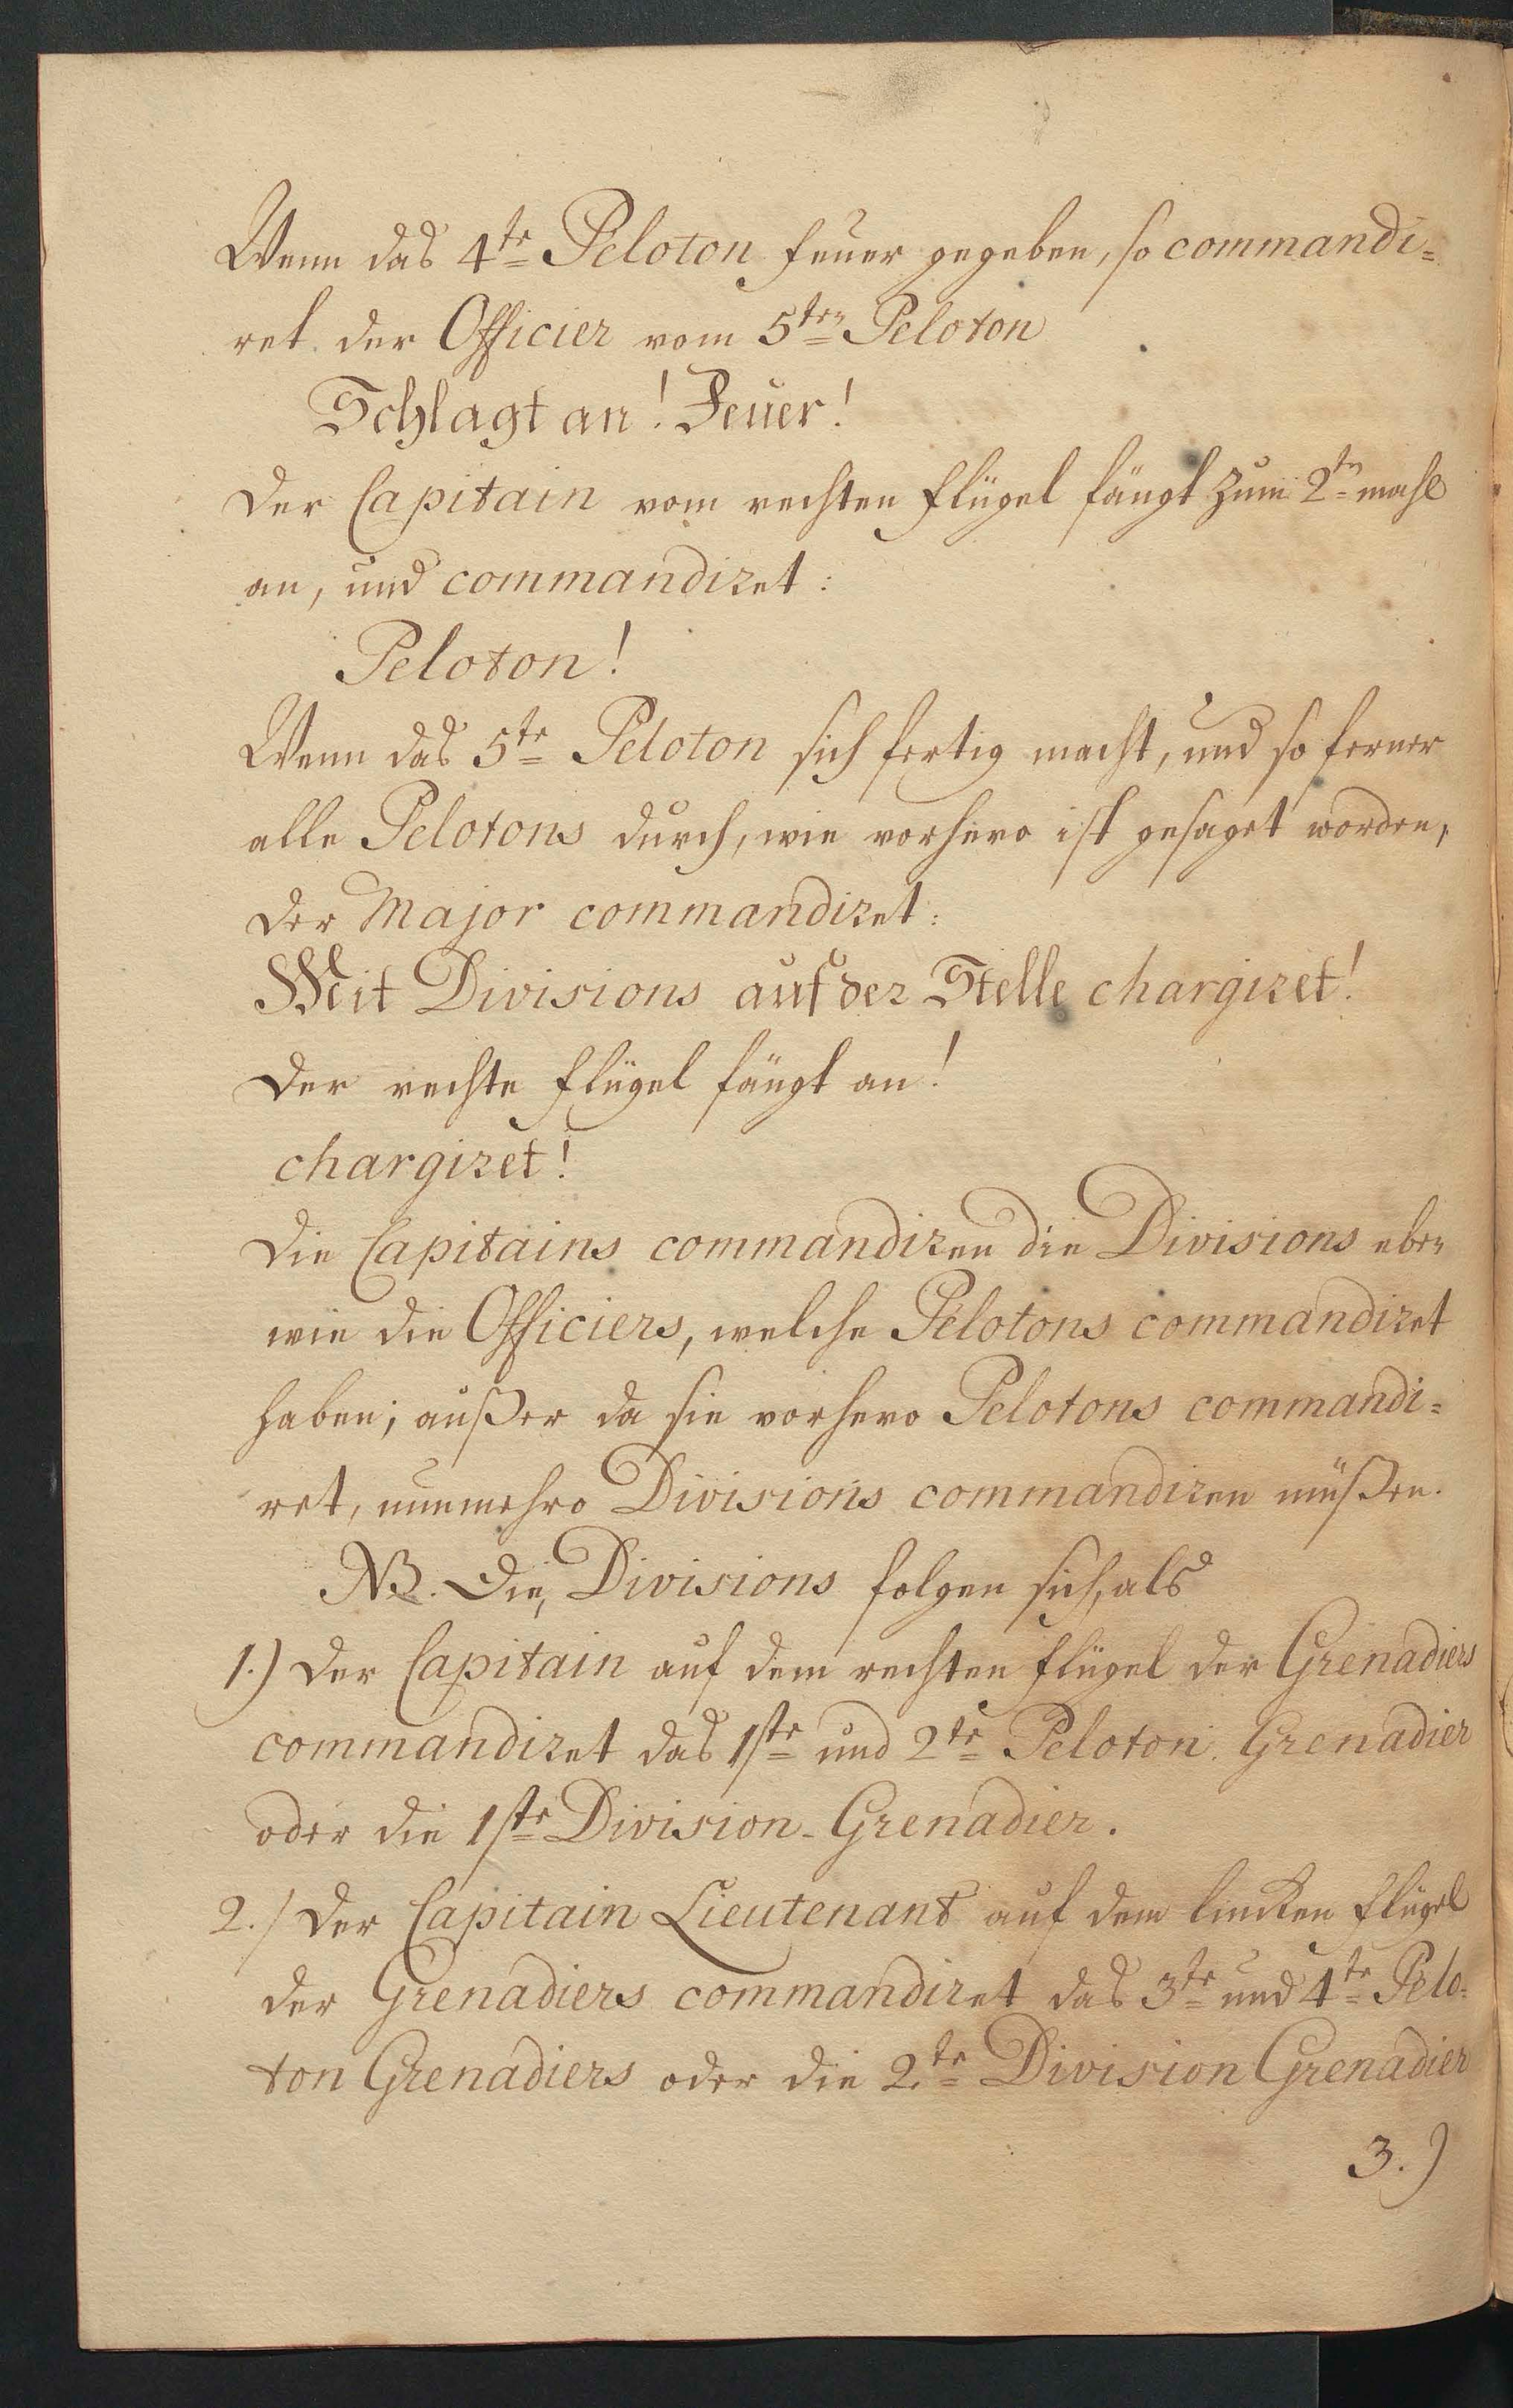 Wenn das 4te Peloton feuer gegeben, so commandi=
ret der Officier vom 5ten Peloton
Schlagt an! Feuer!
Der Capitain vom rechten flügel fängt zum 2tn mahl
an, und commandiret:
Peloton!
Wenn das 5te Peloton sich fertig macht, und so ferner
alle Pelotons durch, wie vorhero ist gesaget worden,
der Major commandiret:
Mit Divisions auf der Stelle chargiret!
Der rechte flügel fängt an!
chargiret!
Die Capitains commandiren die Divisions eben
wie die Officiers, welche Pelotons commandiret
haben; außer da sie vorhero Pelotons commandi=
ret, nunmehro Divisions commandiren müßen.
NB. Die, Divisions folgen sich, als
1.) Der Capitain auf dem rechten flügel der Grenadiers
commandiret das 1ste und 2te Peloton Grenadier
oder die 1ste Division-Grenadier.
2./ Der Capitain Lieutenant auf dem lincken flügel
der Grenadiers commandiret das 3te und 4te Pelo=
ton Grenadiers oder die 2te Division Grenadier
3.)